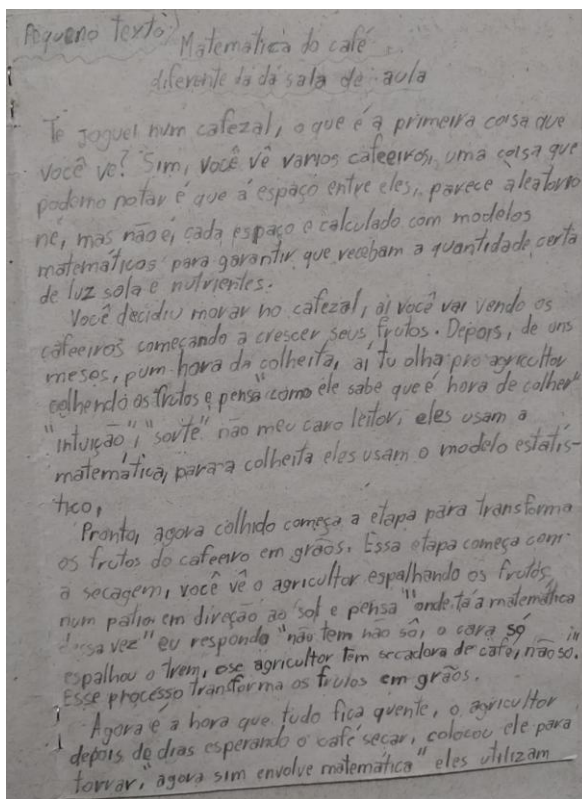 Pequeno texto:
Matemática do café
diferente da dá sala de aula
Te joguei num cafezal, o que é a primeira coisa que
você ve? Sim, você vê varios cafeeiros, uma coisa que
podemo notar é que a espaço entre eles, parece aleatorio
né, mas não é, cada espaço e calculado com modelos
matemáticos para garantir que recebam a quantidade certa
de luz sola e nutrientes.
Você decidiu morar no cafezal, aí você vai vendo os
cafeeiros começando a crescer seus frutos. Depois, de uns
meses, pum hora da colheita, aí tu olha pro agricultor
colhendo os frutos e pensa "como ele sabe que é hora de colher"
"intuição", "sorte" não meu caro leitor, eles usam a
matemática, para a colheita eles usam o modelo estatís-
tico,
Pronto, agora colhido começa a etapa para transforma
os frutos do cafeeiro em grãos. Essa etapa começa com
a secagem, você vê o agricultor espalhando os frutos
num patio em direção ao sol e pensa "onde tá a matemática
dessa vez" eu respondo "não tem não sô, o cara só
espalhou o trem, ose agricultor tem secadora de café, não so.
Esse processo transforma os frutos em grãos.
Agora é a hora que tudo fica quente, o agricultor
depois de dias esperando o café secar, colocou ele para
torrar, "agora sim envolve matemática" eles utilizam